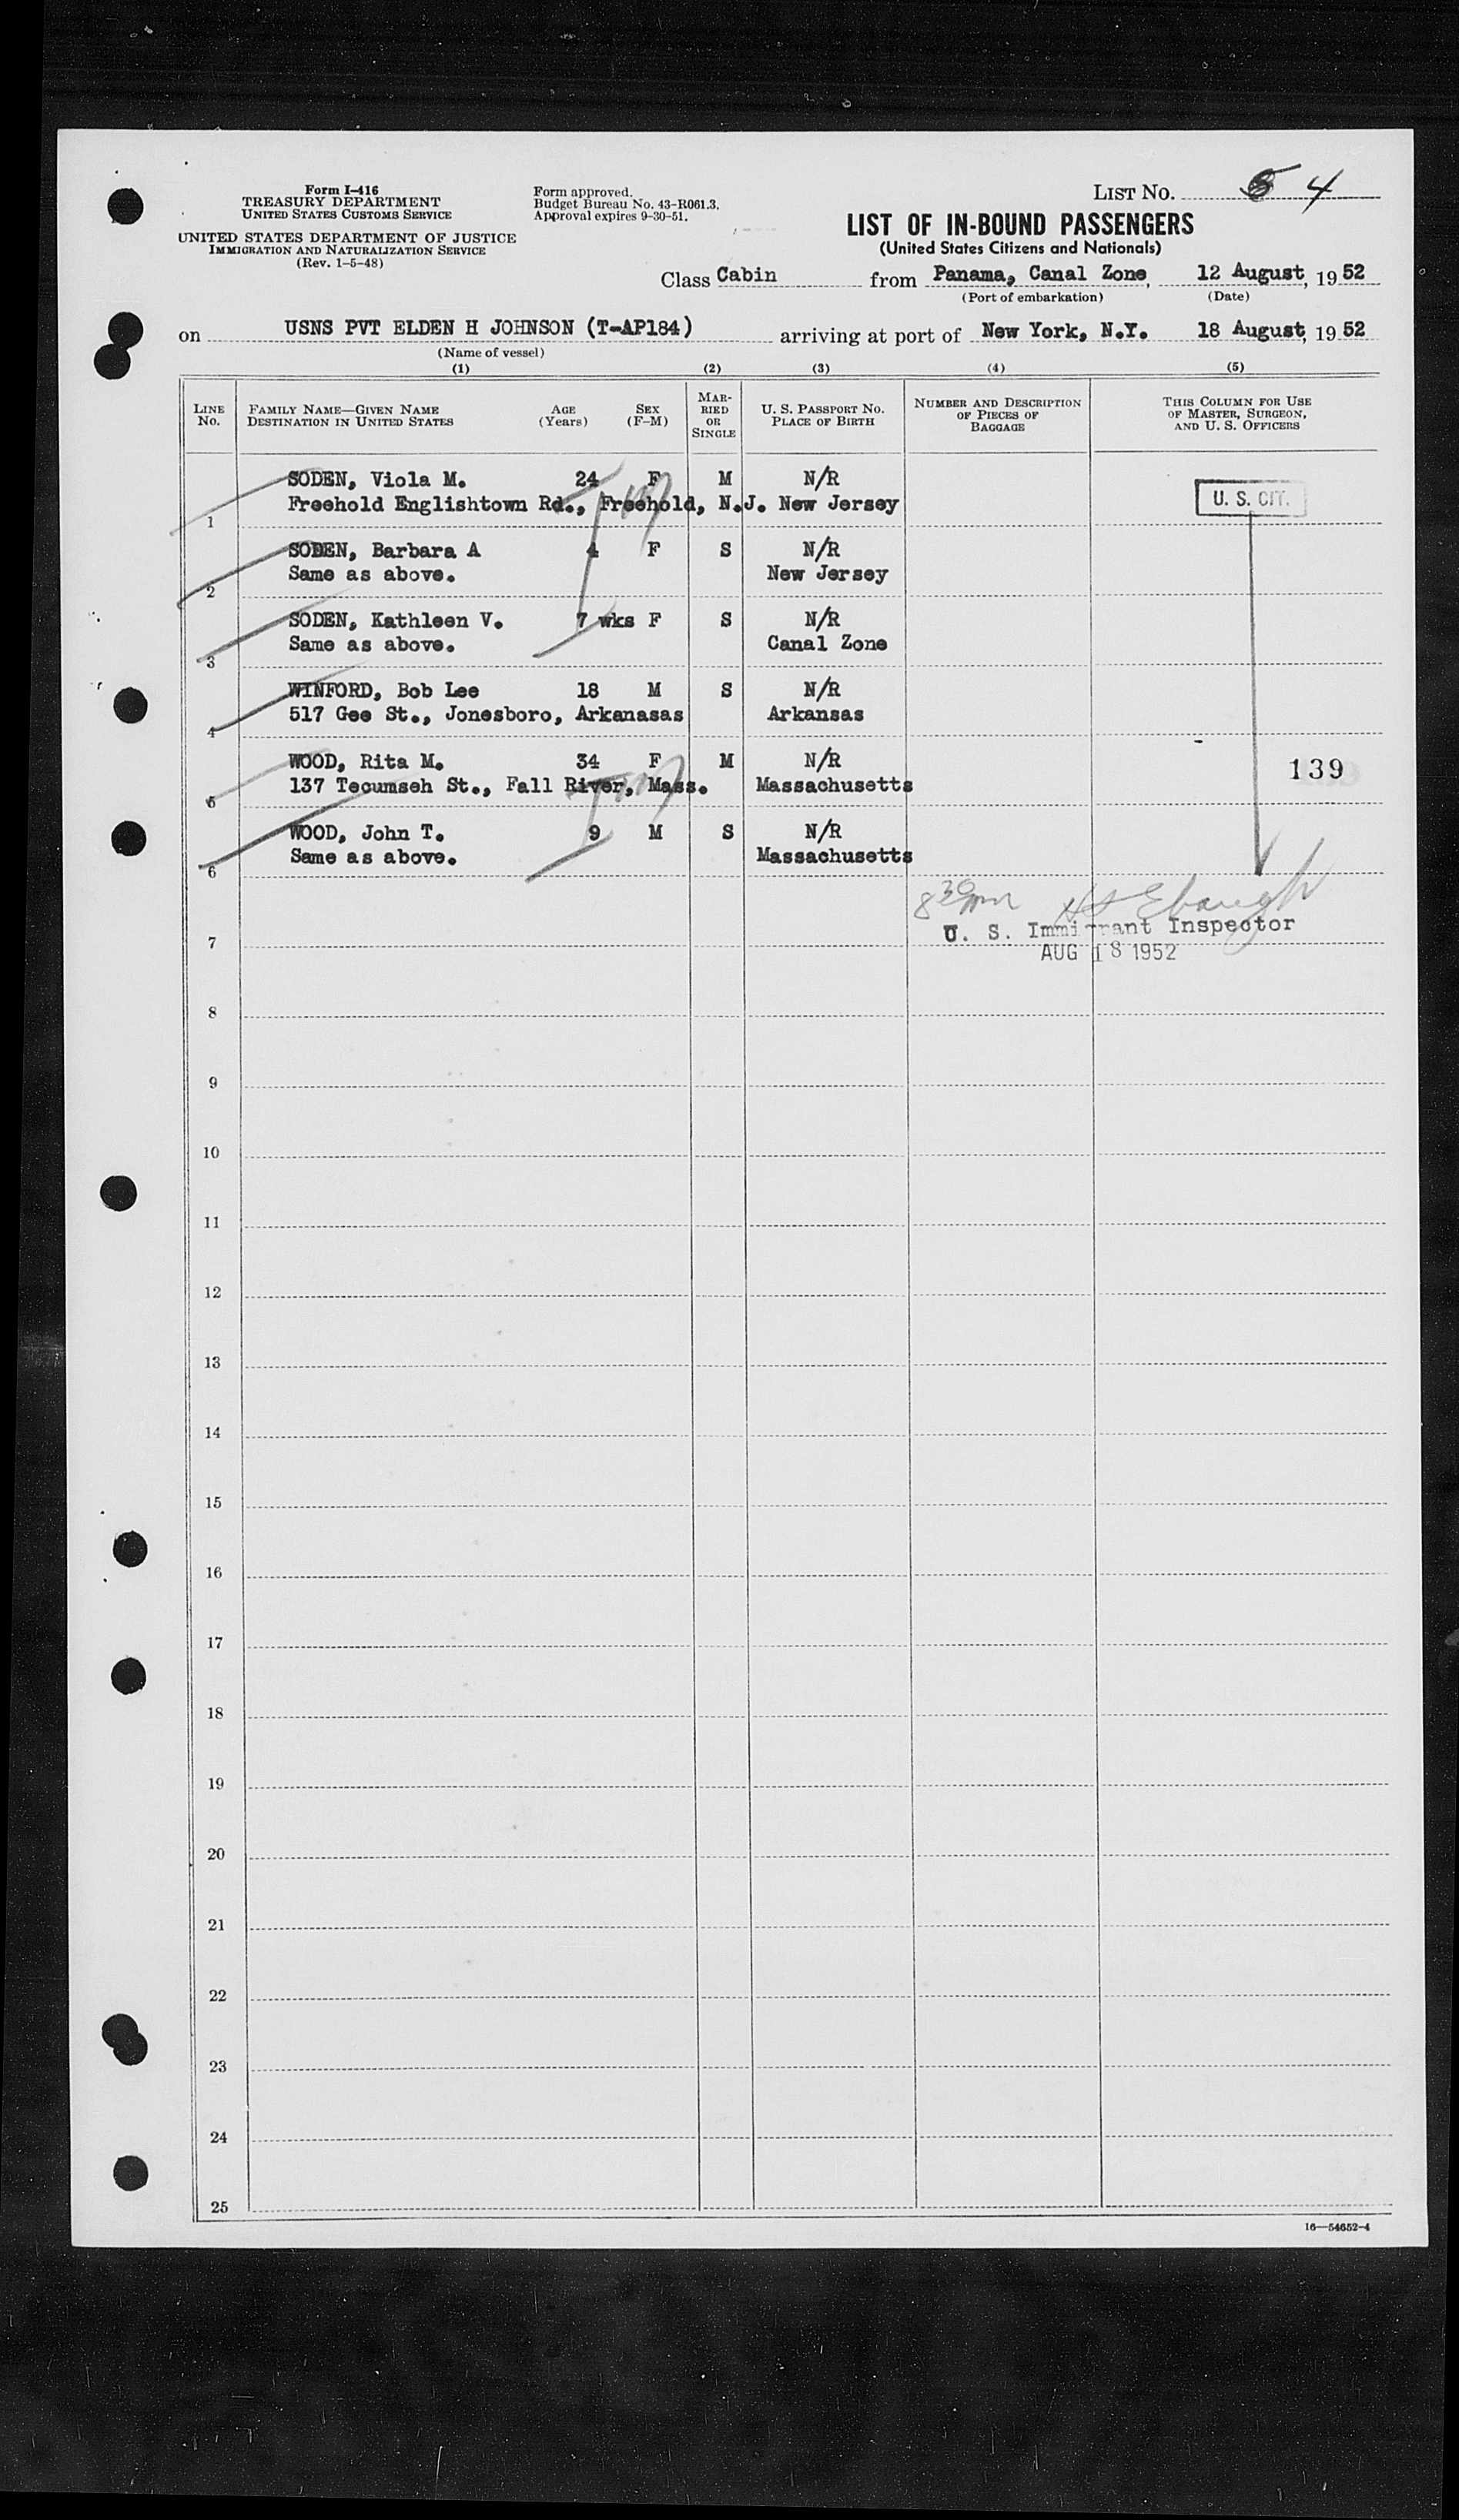 Form I-416
TREASURY DEPARTMENT
UNITED STATES CUSTOMS SERVICE
UNITED STATES DEPARTMENT OF JUSTICE
IMMIGRATION AND NATURALIZATION SERVICE
(Rev. 1-5-48)
Form approved.
Budget Bureau No. 43-R061.3.
Approval expires 9-30-51.
LIST No. 4
LIST OF IN-BOUND PASSENGERS
(United States Citizens and Nationals)
Class Cabin from Panama, Canal Zone, 12 August, 1952
(Port of embarkation) (Date)
on USNS PVT ELDEN H JOHNSON (T-AP184) arriving at port of New York, N.Y. 18 August, 1952
(Name of vessel)
(1) (2) (3) (4) (5)
LINE No.
FAMILY NAME—GIVEN NAME
DESTINATION IN UNITED STATES
AGE (Years)
SEX (F-M)
MARRIED OR SINGLE
U. S. PASSPORT NO.
PLACE OF BIRTH
NUMBER AND DESCRIPTION OF PIECES OF BAGGAGE
THIS COLUMN FOR USE OF MASTER, SURGEON, AND U. S. OFFICERS
SODEN, Viola M. 24 F M N/R
1 Freehold Englishtown Rd., Freehold, N.J. New Jersey
U. S. CIT.
SODEN, Barbara A 4 F S N/R
2 Same as above. New Jersey
SODEN, Kathleen V. 7 wks F S N/R
3 Same as above. Canal Zone
WINFORD, Bob Lee 18 M S N/R
4 517 Gee St., Jonesboro, Arkanasas Arkansas
WOOD, Rita M. 34 F M N/R
5 137 Tecumseh St., Fall River, Mass. Massachusetts
139
WOOD, John T. 9 M S N/R
6 Same as above. Massachusetts
U. S. Immigrant Inspector
AUG 18 1952
7
8
9
10
11
12
13
14
15
16
17
18
19
20
21
22
23
24
25
16—54652-4